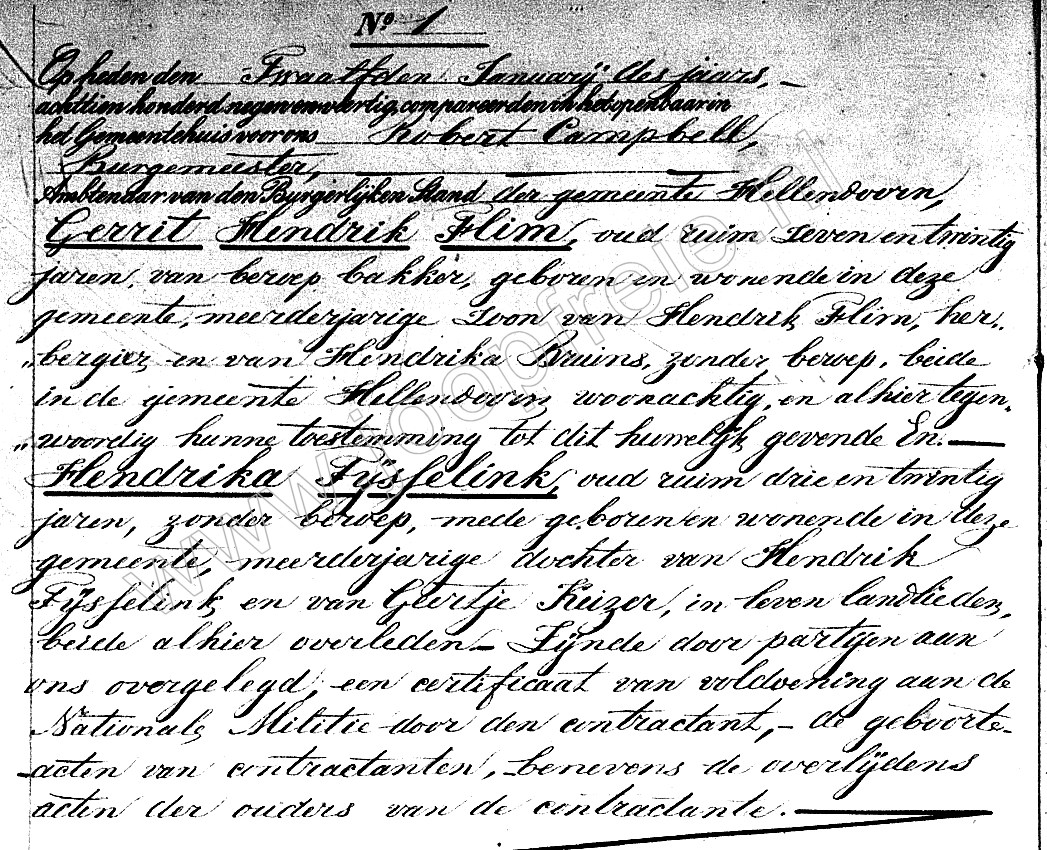 No. 1
Op heden den Twaalfden Januarij des jaars,
achttien honderd negen en veertig, compareerden in het openbaar in
het Gemeentehuis voor ons Robert Campbell,
Burgemeester,
Ambtenaar van den Burgerlijken Stand der gemeente Hellendoorn,
Gerrit Hendrik Flim, oud ruim zeven en twintig
jaren, van beroep bakker, geboren en wonende in deze
gemeente, meerderjarige zoon van Hendrik Flim, her„
„bergier en van Hendrika Bruins, zonder beroep, beide
in de gemeente Hellendoorn woonachtig, en alhier tegen„
„woordig hunne toestemming tot dit huwelijk gevende En.
Hendrika Fijsfelink, oud ruim drie en twintig
jaren, zonder beroep, mede geboren en wonende in deze
gemeente, meerderjarige dochter van Hendrik
Fijsfelink en van Geertje Keizer, in leven landlieden,
beide alhier overleden – Zijnde door partijen aan
ons overgelegd, een certificaat van voldoening aan de
Nationale Militie door den contractant, – de geboorte-
acten van contractanten, benevens de overlijdens
acten der ouders van de contractante.
www.jooptrele.nl